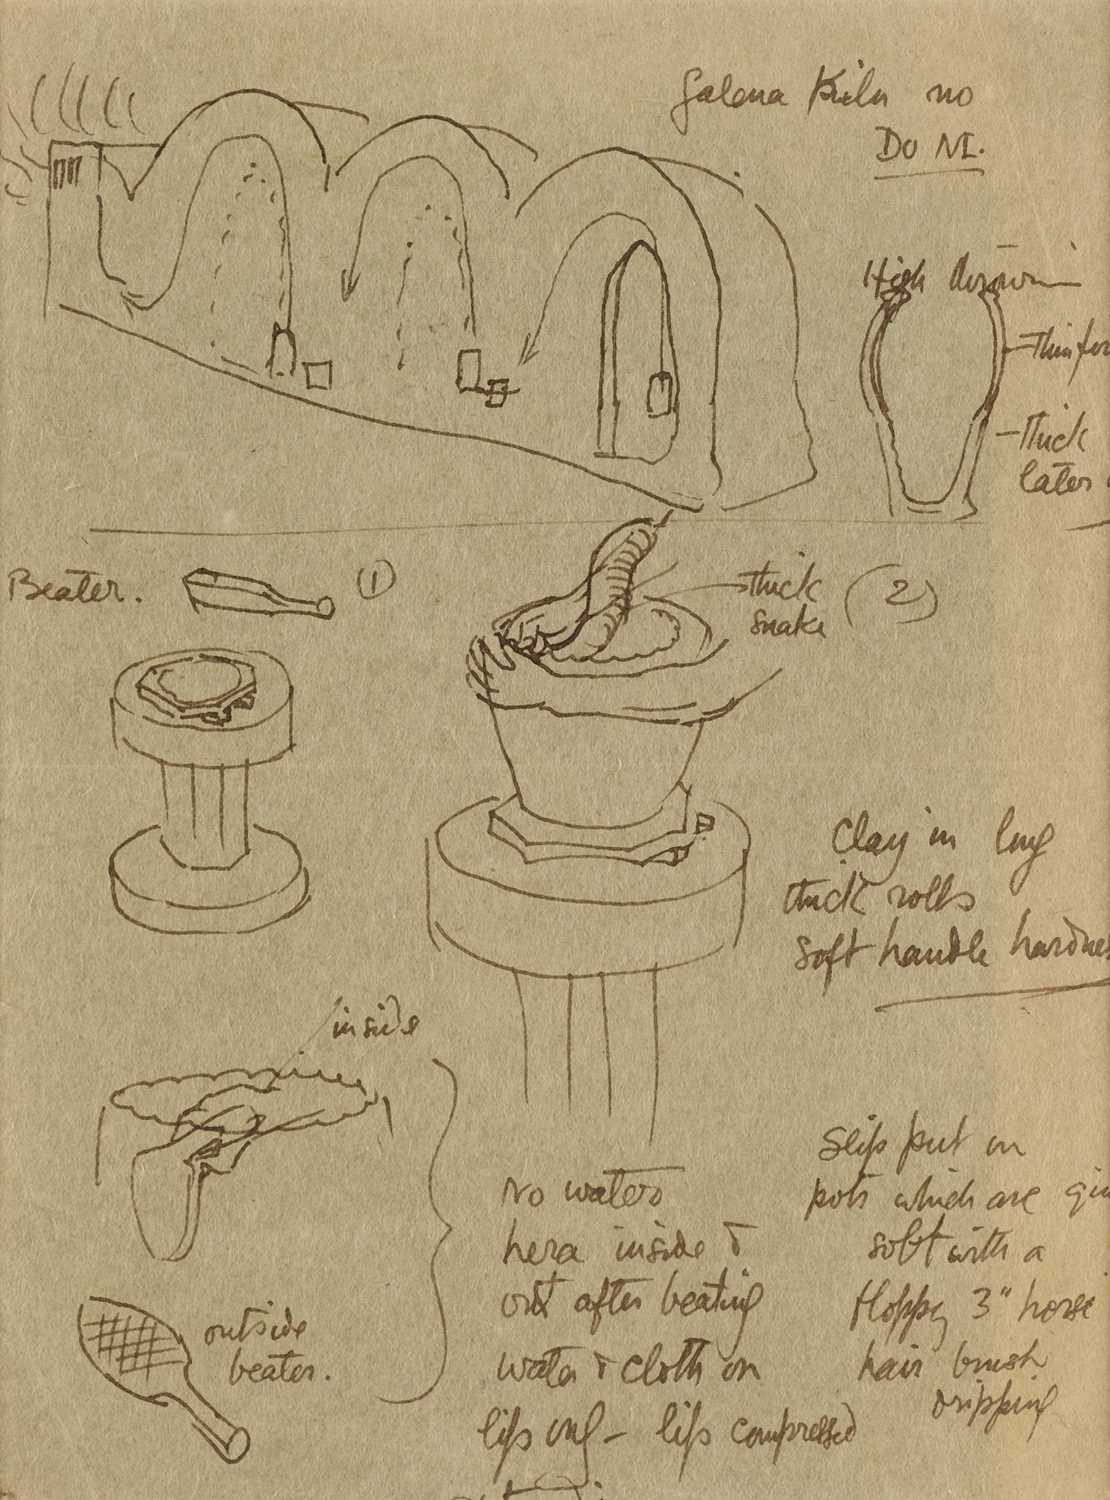 Galena Kiln no
DO NI.
High
Thin for
Thick
later
Beater.
(1)
thick
snake
(2)
Clay in long
thick rolls
soft handle hardnes
inside
No water
hera inside &
out after beating
water & cloth on
lips only – lips compressed
outside
beater.
Slip put on
pots which are
soft with a
floppy 3" horse
hair brush
dripping